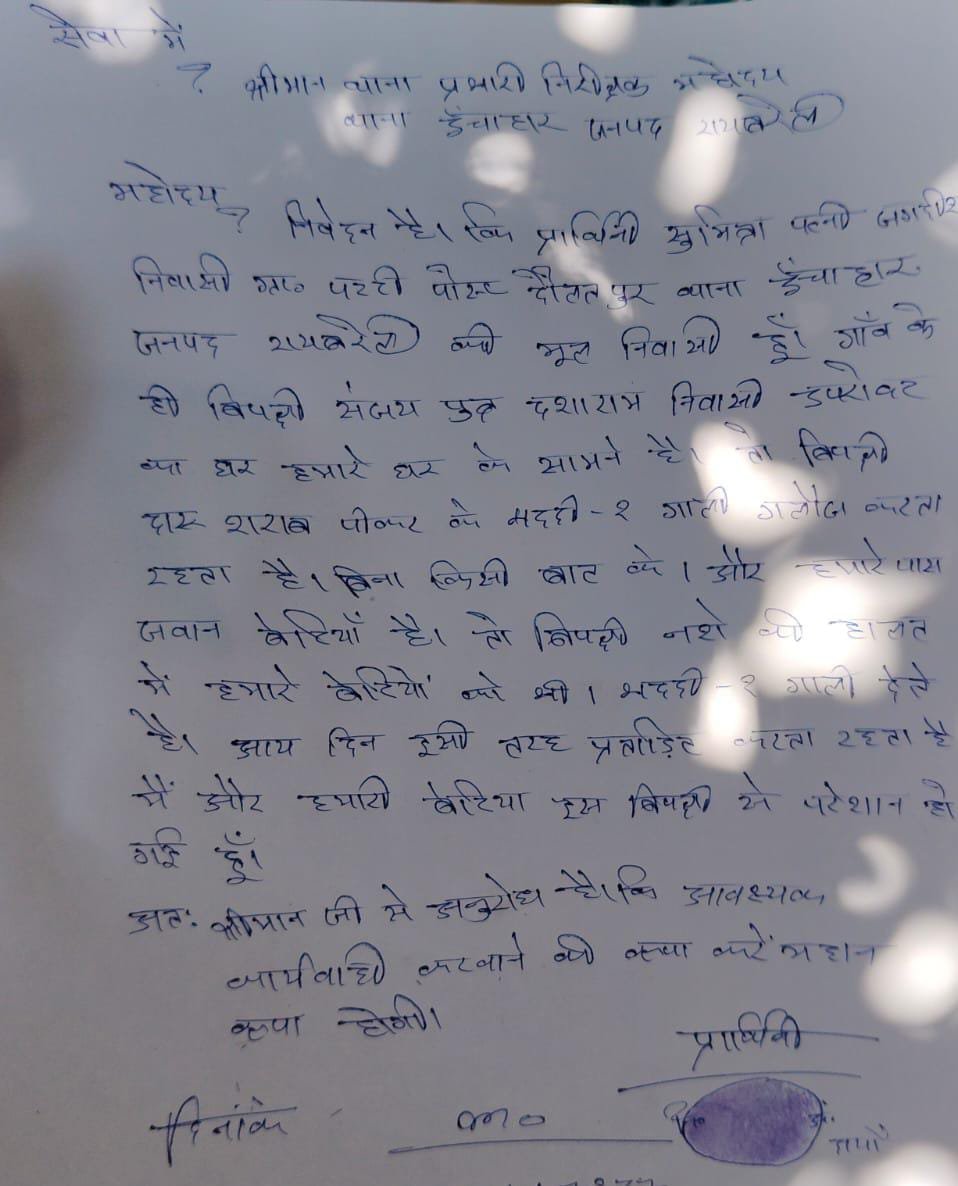 सेवा में
श्रीमान थाना प्रभारी निरीक्षक महोदय
थाना ऊँचाहार जनपद रायबरेली
महोदय
निवेदन है। कि प्रार्थिनी सुमित्रा पत्नी जगदीश
निवासी ग्रा० पट्टी पोस्ट दौलतपुर थाना ऊँचाहार
जनपद रायबरेली की मूल निवासी हूँ। गाँव के
ही बिपक्षी संजय पुत्र दशाराम निवासी उपरोक्त
का घर हमारे घर के सामने है। तो बिपक्षी
दारू शराब पीकर के भद्दी-२ गाली गलौज करता
रहता है। बिना किसी बात के। और हमारे पास
जवान बेटियाँ है। तो बिपक्षी नशे की हालत
में हमारे बेटियों को भी। भद्दी-२ गाली देते
है। आय दिन इसी तरह प्रताड़ित करता रहता है
मैं और हमारी बेटिया इस बिपक्षी से परेशान हो
गई हूँ।
अतः श्रीमान जी से अनुरोध है। कि आवश्यक
कार्यवाही करवाने की कृपा करें महान
कृपा होगी।
प्रार्थिनी
दिनांक